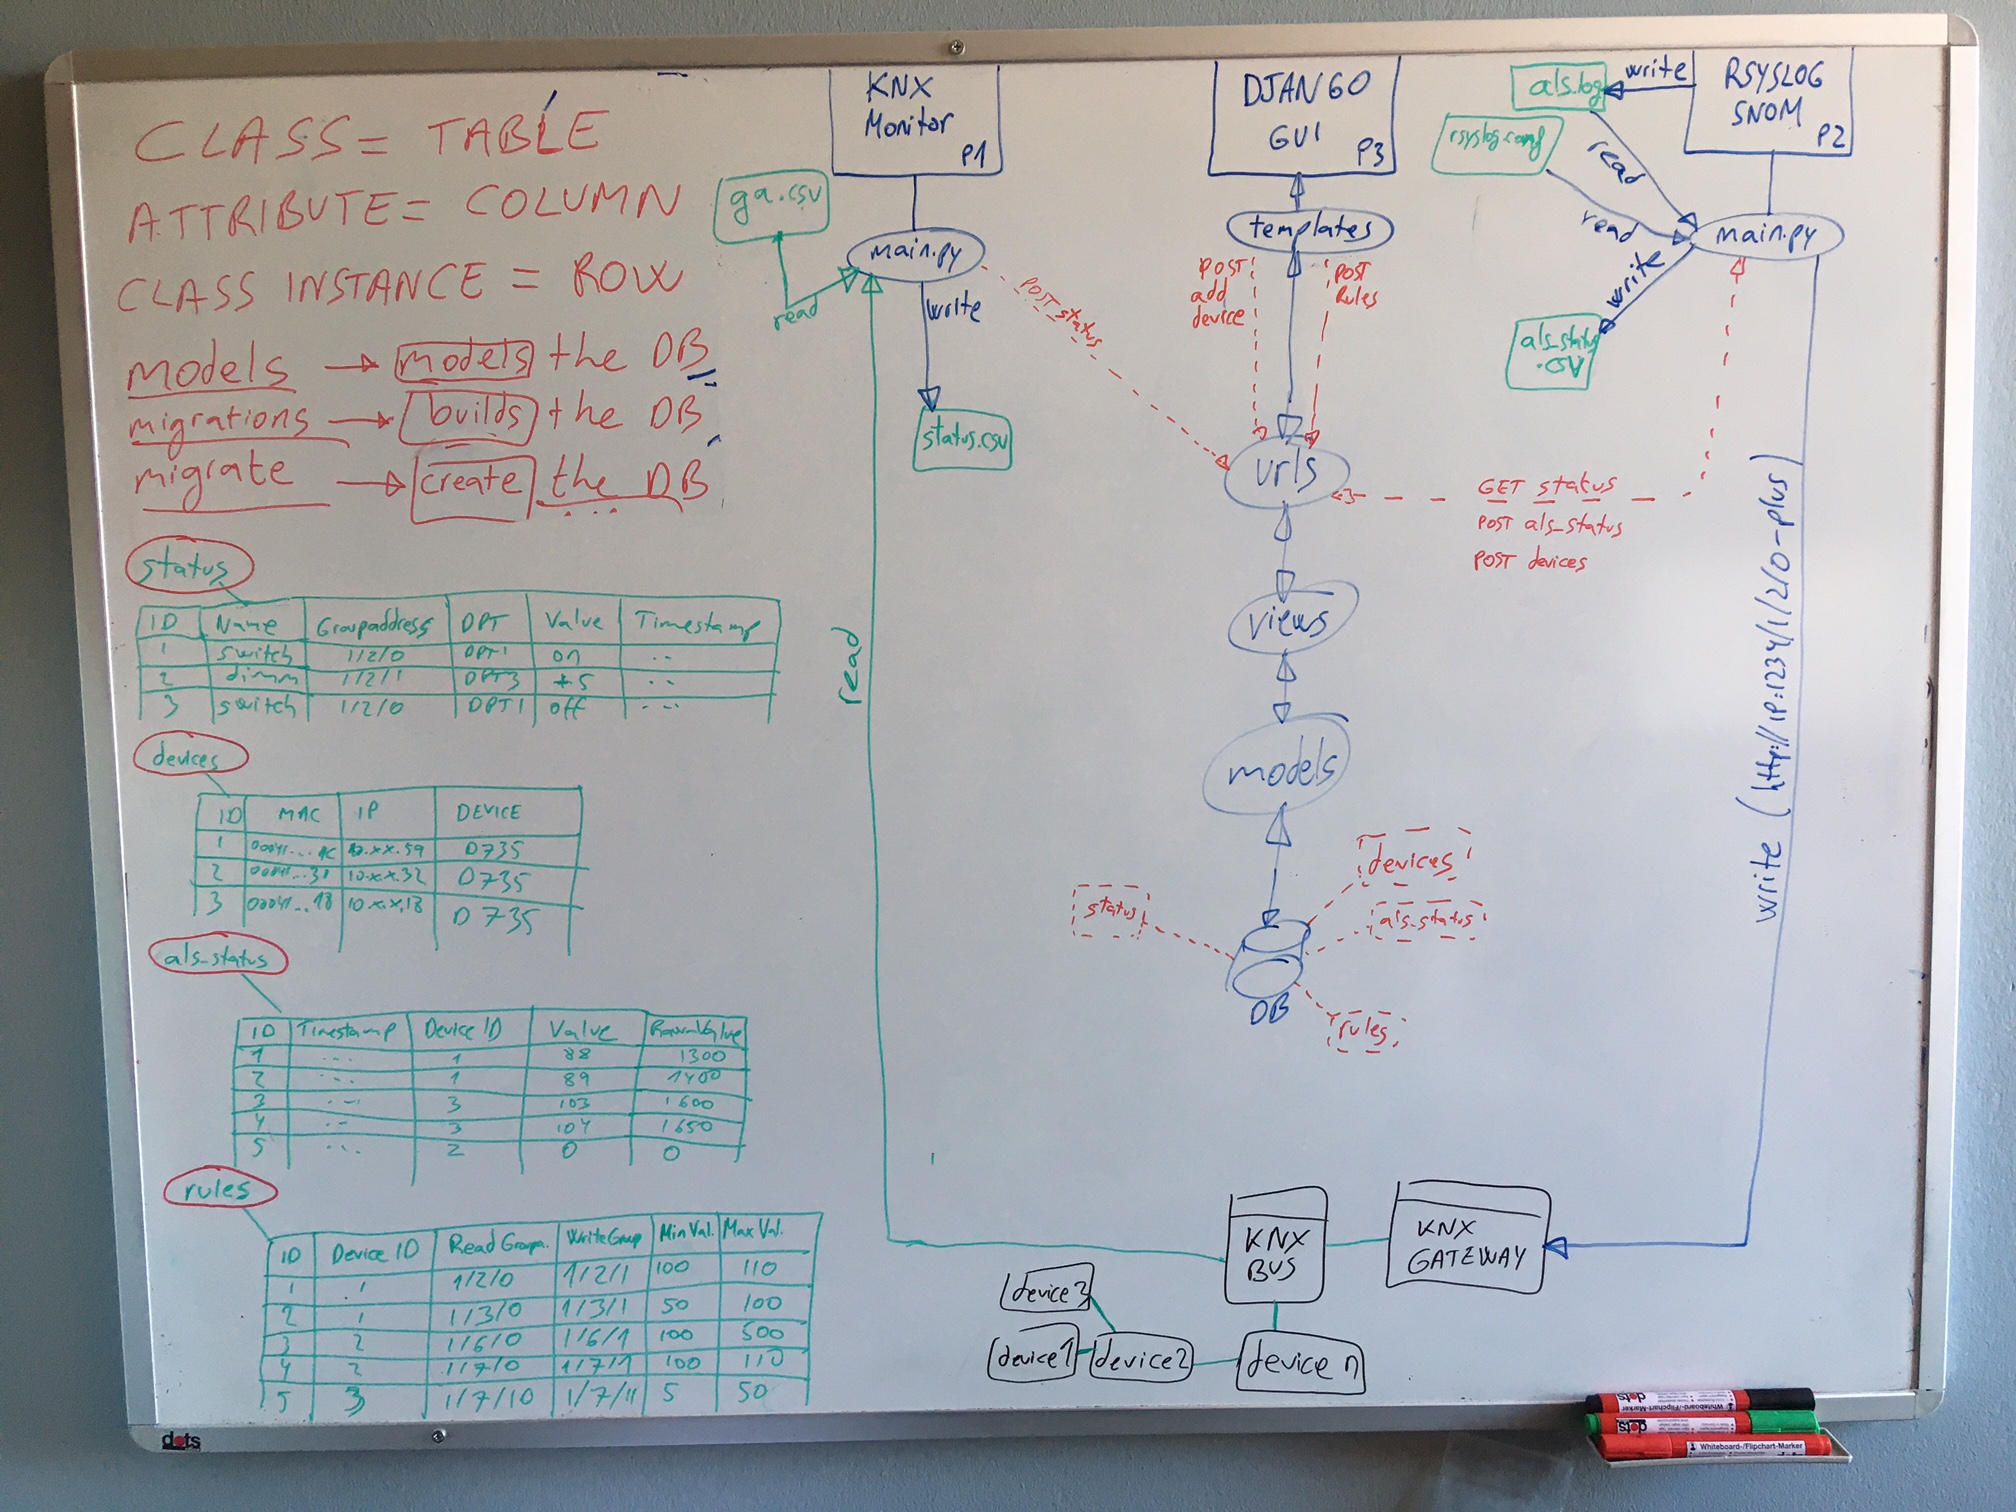 CLASS = TABLE
ATTRIBUTE = COLUMN
CLASS INSTANCE = ROW
models → models the DB
migrations → builds the DB
migrate → create the DB
status
ID Name Groupaddress DPT Value Timestamp
1 switch 1/2/0 DPT1 on ..
2 dimm 1/2/1 DPT3 +5 ..
3 switch 1/2/0 DPT1 off ...
devices
ID MAC IP DEVICE
1 D735
2 10.x.x.32 D735
3 10.x.x.18 D735
als_status
ID Timestamp Device ID Value RawValue
1 ... 1 88 1300
2 ... 1 89 1400
3 ... 3 103 1600
4 .. 3 104 1650
5 ... 2 0 0
rules
ID Device ID Read Groupa. Write Group Min Val. Max Val.
1 1 1/2/0 1/2/1 100 110
2 1 1/3/0 1/3/1 50 100
3 2 1/6/0 1/6/1 100 500
4 2 1/7/0 1/7/1 100 110
5 3 1/7/10 1/7/11 5 50
KNX
Monitor
P1
ga.csv
main.py
read
write
status.csv
POST status
read
DJANGO
GUI
P3
templates
POST
add
device
POST
Rules
urls
views
models
DB
status
devices
als_status
rules
RSYSLOG
SNOM
P2
write
als.log
rsyslog.conf
read
read
main.py
write
als_status
.csv
GET status
POST als_status
POST devices
write (http://IP:1234/1/2/0-plus)
KNX
BUS
KNX
GATEWAY
device3
device1
device2
device n
dots
dots
Whiteboard-/Flipchart-Marker
dots
Whiteboard-/Flipchart-Marker